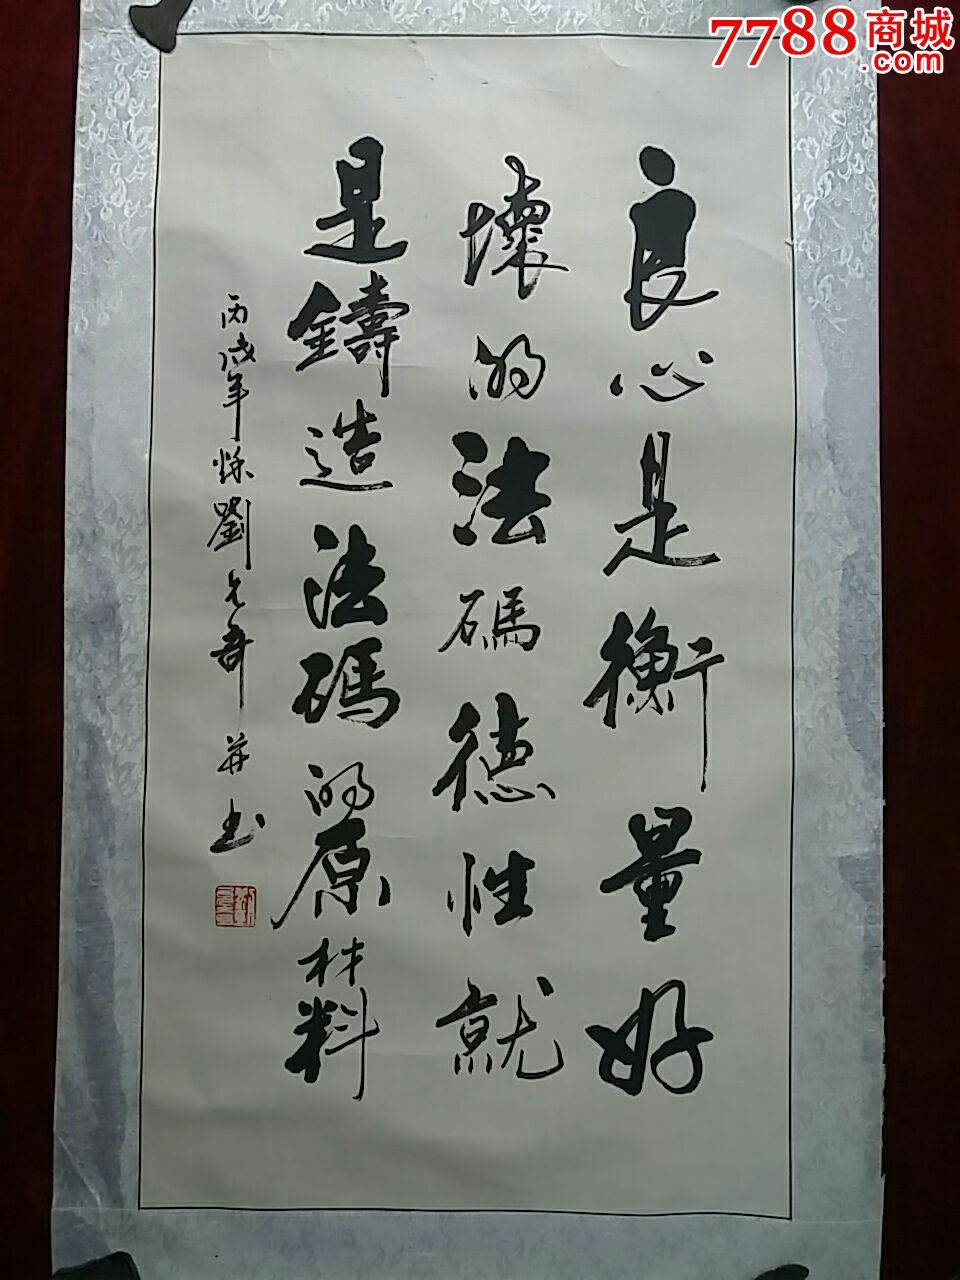 7788商城
.com
良心是衡量好
壞的法碼德性就
是鑄造法碼的原材料
丙戌年秋劉允奇并书